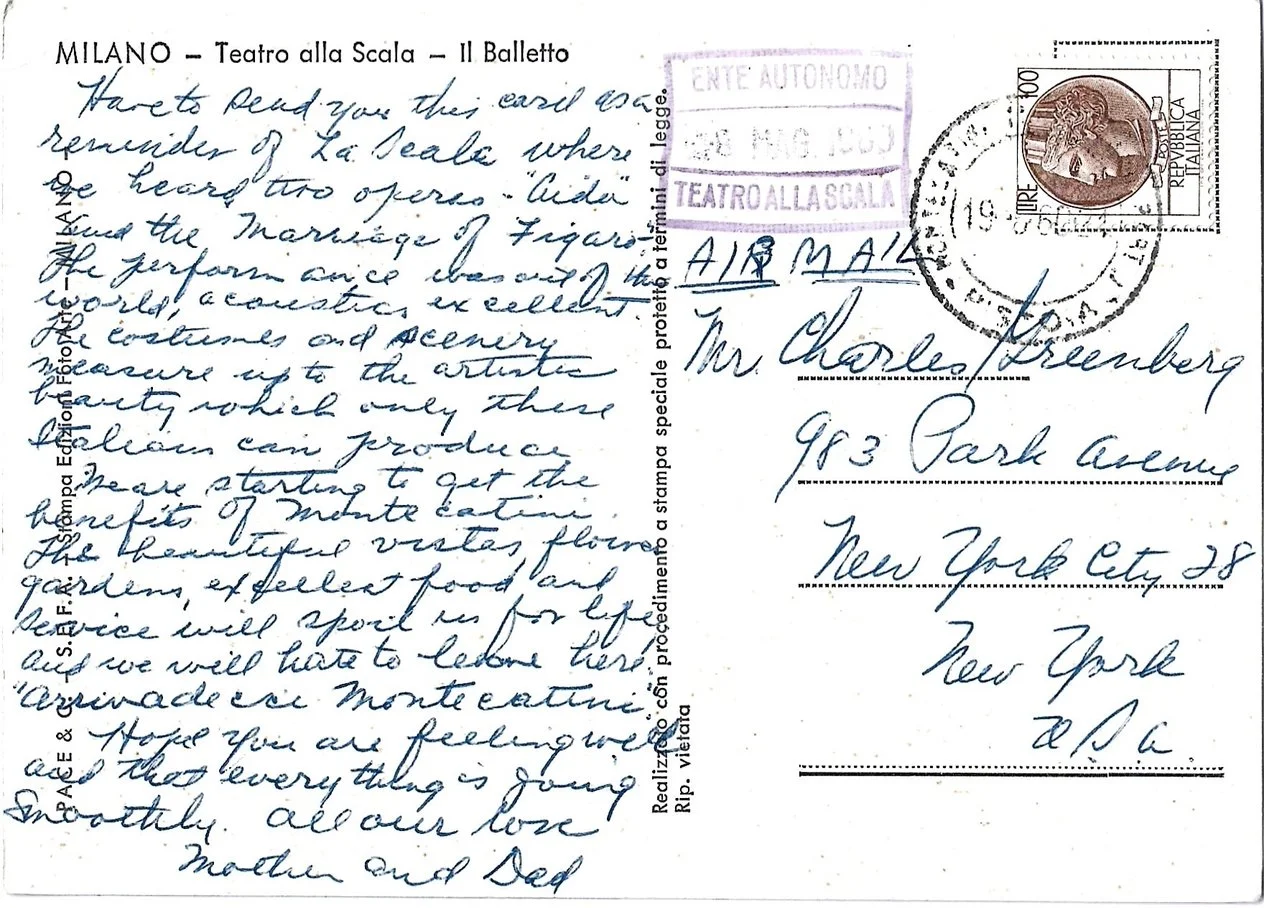 MILANO – Teatro alla Scala – Il Balletto
Have to send you this card as a
reminder of La Scala where
we heard two operas - "Aida"
and the Marriage of Figaro -
The performance was out of the
world, acoustics excellent.
The costumes and scenery
measure up to the artistic
beauty which only these
Italians can produce
We are starting to get the
benefits of Monte catini.
The beautiful vistas, flower
gardens, excellest food and
service will spoil us for life,
and we will hate to leave here,
"Arrivadecci Montecatini".
Hope you are feeling well
and that everything is going
Smoothly. All our love
Mother and Dad
PACE & C. - S.E.F.A. - Stampa Edizioni Foto Arte - MILANO -
Realizzato con procedimento a stampa speciale protetto a termini di legge.
Rip. vietata
ENTE AUTONOMO
MAG.
TEATRO ALLA SCALA
LIRE 100
POSTE
REPVBBLICA
ITALIANA
PISTOIA
AIR MAIL
Mr. Charles Greenberg
983 Park Avenue
New York City 28
New York
U S a